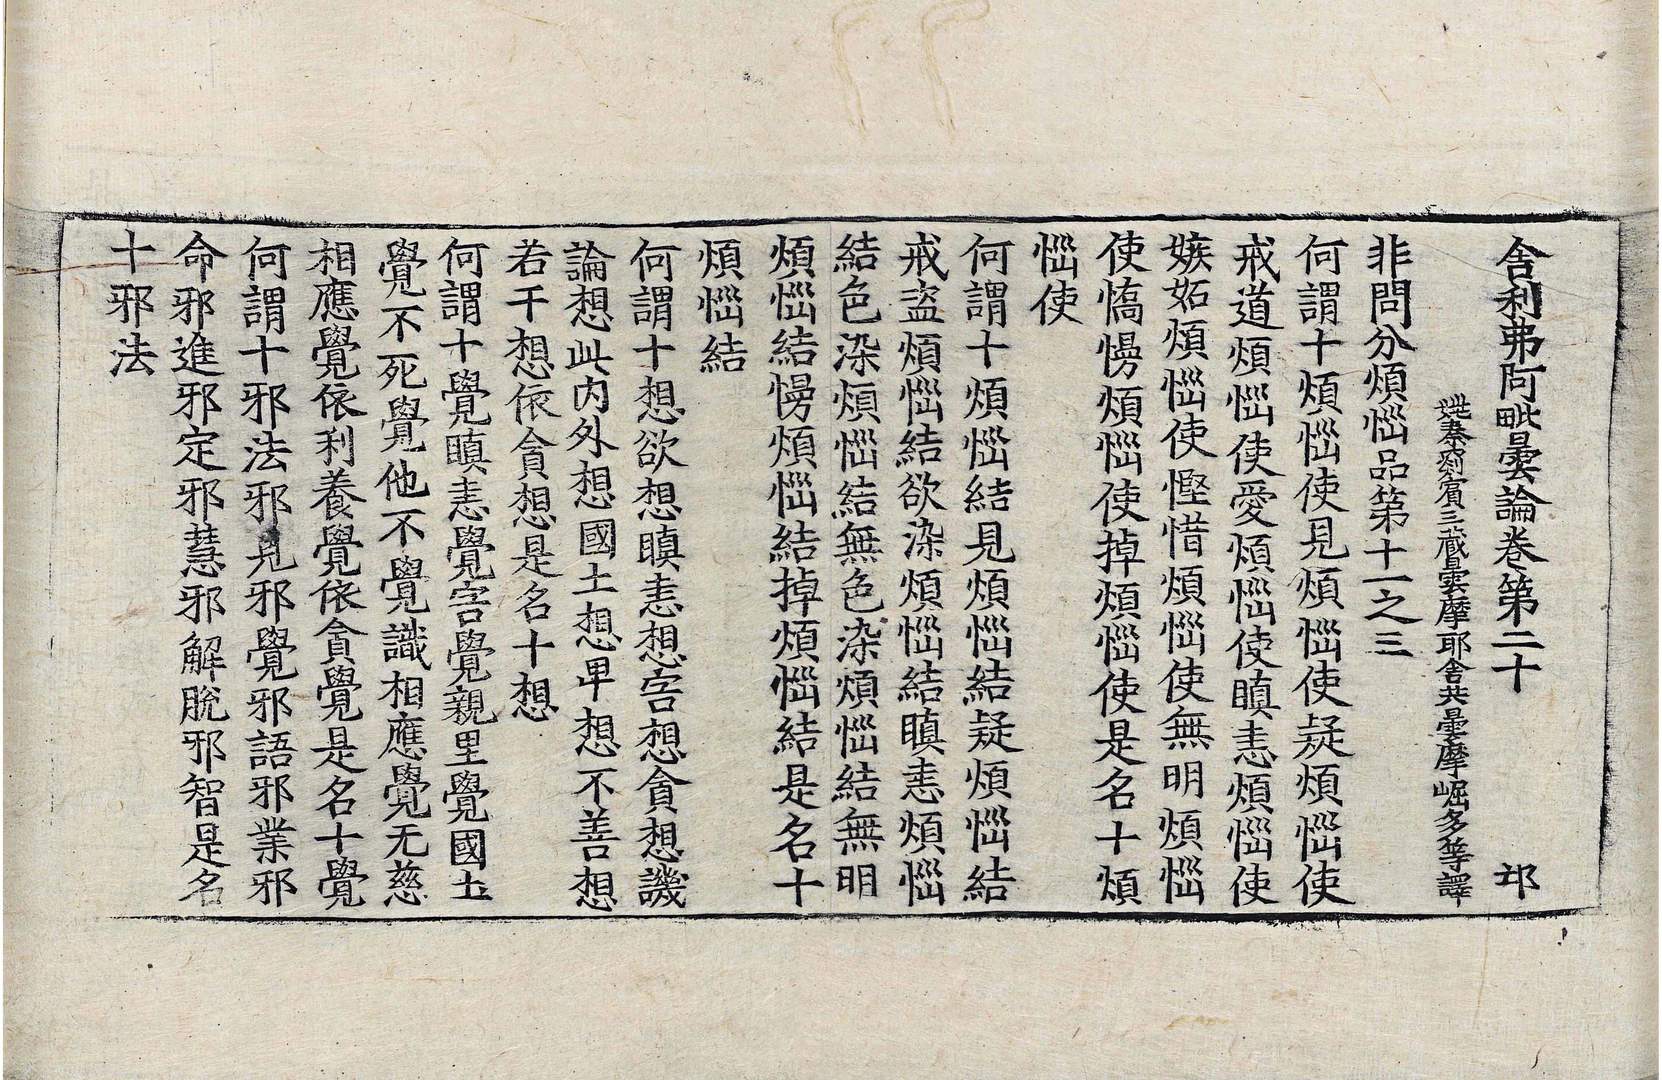 舍利弗阿毗曇論卷第二十 邙
姚秦罽賓三藏曇摩耶舍共曇摩崛多等譯
非問分煩惱品第十一之三
何謂十煩惱使見煩惱使疑煩惱使
戒道煩惱使愛煩惱使瞋恚煩惱使
嫉妬煩惱使慳惜煩惱使無明煩惱
使憍慢煩惱使掉煩惱使是名十煩
惱使
何謂十煩惱結見煩惱結疑煩惱結
戒盜煩惱結欲染煩惱結瞋恚煩惱
結色染煩惱結無色染煩惱結無明
煩惱結慢煩惱結掉煩惱結是名十
煩惱結
何謂十想欲想瞋恚想害想貪想譏
論想此內外想國土想卑想不善想
若干想依貪想是名十想
何謂十覺瞋恚覺害覺親里覺國土
覺不死覺他不覺識相應覺无慈
相應覺依利養覺依貪覺是名十覺
何謂十邪法邪見邪覺邪語邪業邪
命邪進邪定邪慧邪解脫邪智是名
十邪法